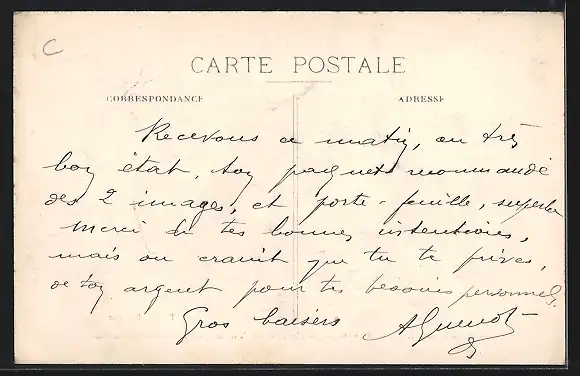 C
CARTE POSTALE
CORRESPONDANCE
ADRESSE
Recevons ce matin, en très
bon état, ton paquet recommandé
des 2 images, et porte-feuille, superbe
Merci de tes bonnes intentions,
mais on craint que tu te prives,
de ton argent pour tes besoins personnels.
Gros baisers